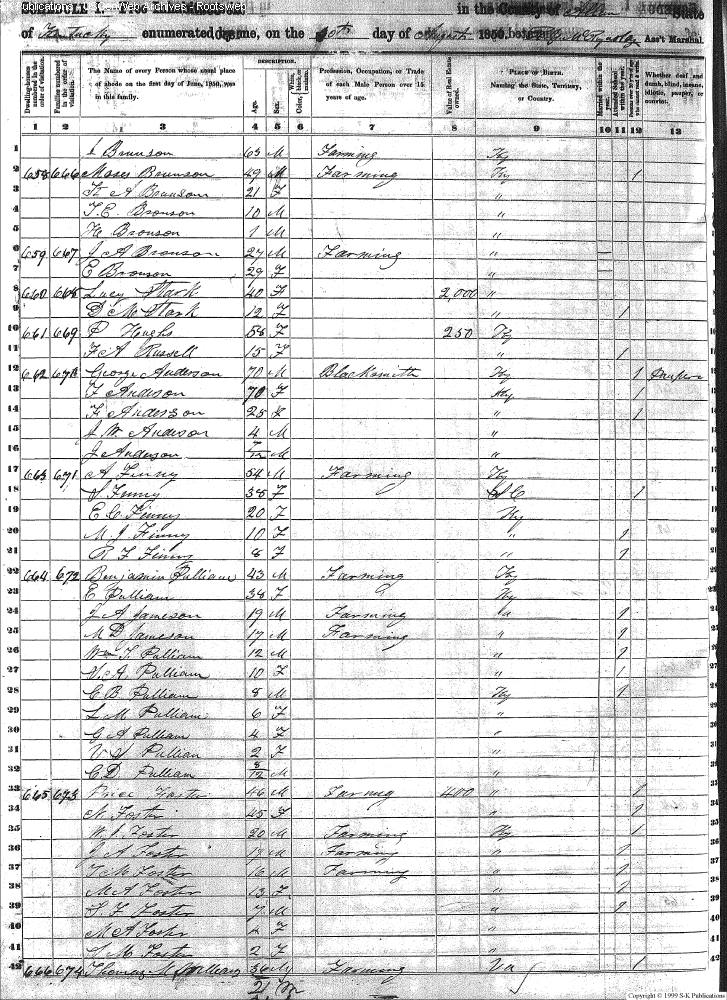 Publications / USGenWeb Archives - Rootsweb
in the County of Allen State
of Kentucky enumerated by me, on the 10th day of August 1850. Ass't Marshal.
Dwelling-houses numbered in the order of visitation.
Families numbered in the order of visitation.
The Name of every Person whose usual place of abode on the first day of June, 1850, was in this family.
DESCRIPTION.
Age.
Sex.
Color, White, black, or mulatto.
Profession, Occupation, or Trade of each Male Person over 15 years of age.
Value of Real Estate owned.
PLACE OF BIRTH.
Naming the State, Territory, or Country.
Married within the year.
Attended School within the year.
Whether deaf and dumb, blind, insane, idiotic, pauper, or convict.
1 2 3 4 5 6 7 8 9 10 11 12 13
1 Brunson 63 M Farming Ky
2 658 666 Moses Brunson 49 M Farming Ky 1
3 A Brunson 21 F "
4 T. E. Bronson 10 M "
5 Bronson 1 M "
6 659 667 J A Bronson 27 M Farming "
7 E Bronson 29 F "
8 660 668 Lucy Stark 40 F 2,000 "
9 D M Stark 12 F " 1
10 661 669 P Hughs 58 F 250 Ky
11 F A Russell 15 F " 1
12 662 670 George Anderson 70 M Blacksmith Ky 1
13 F Anderson 70 F Ky 1
14 F Anderson 25 " 1
15 J. W. Anderson 4 M "
16 J Anderson 7/12 M "
17 663 671 A Finny 54 M Farming Ky
18 S Finny 38 F S C 1
19 E. C. Finny 20 F Ky
20 M. J. Finny 10 F " 1
21 R F Finny 8 F " 1
22 664 672 Benjamin Pulliam 43 M Farming Ky
23 E Pulliam 38 F Ky
24 J. A. Jameson 19 M Farming " 1
25 M D Jameson 17 M Farming " 1
26 Wm T. Pulliam 12 M " 1
27 A. Pulliam 10 F " 1
28 C B Pulliam 8 M Ky 1
29 L M Pulliam 6 F "
30 G A Pulliam 4 F "
31 V S Pullian 2 F "
32 C D Pulliam 8/12 M "
33 665 673 Price Foster 46 M Farming 400 " 1
34 N. Foster 45 F " 1
35 W. J. Foster 20 M Farming Ky 1
36 J A Foster M Farming " 1
37 T. M Foster 16 M Farming " 1
38 M A Foster 13 F " 1
39 S F Foster 7 M " 1
40 M A Foster 4 F "
41 M. Foster 2 F "
42 666 674 Thomas M 36 M Farming Va 1
Copyright © 1999 S-K Publications